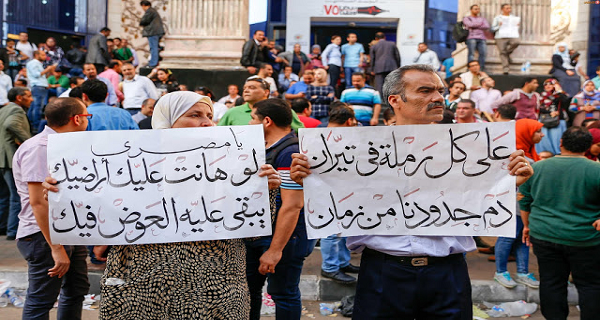 VO
يا مصرى
لو هانت عليك أراضيك
يبقى عليه العوض فيك
على كل رملة فى تيران
دم جدودنا من زمان